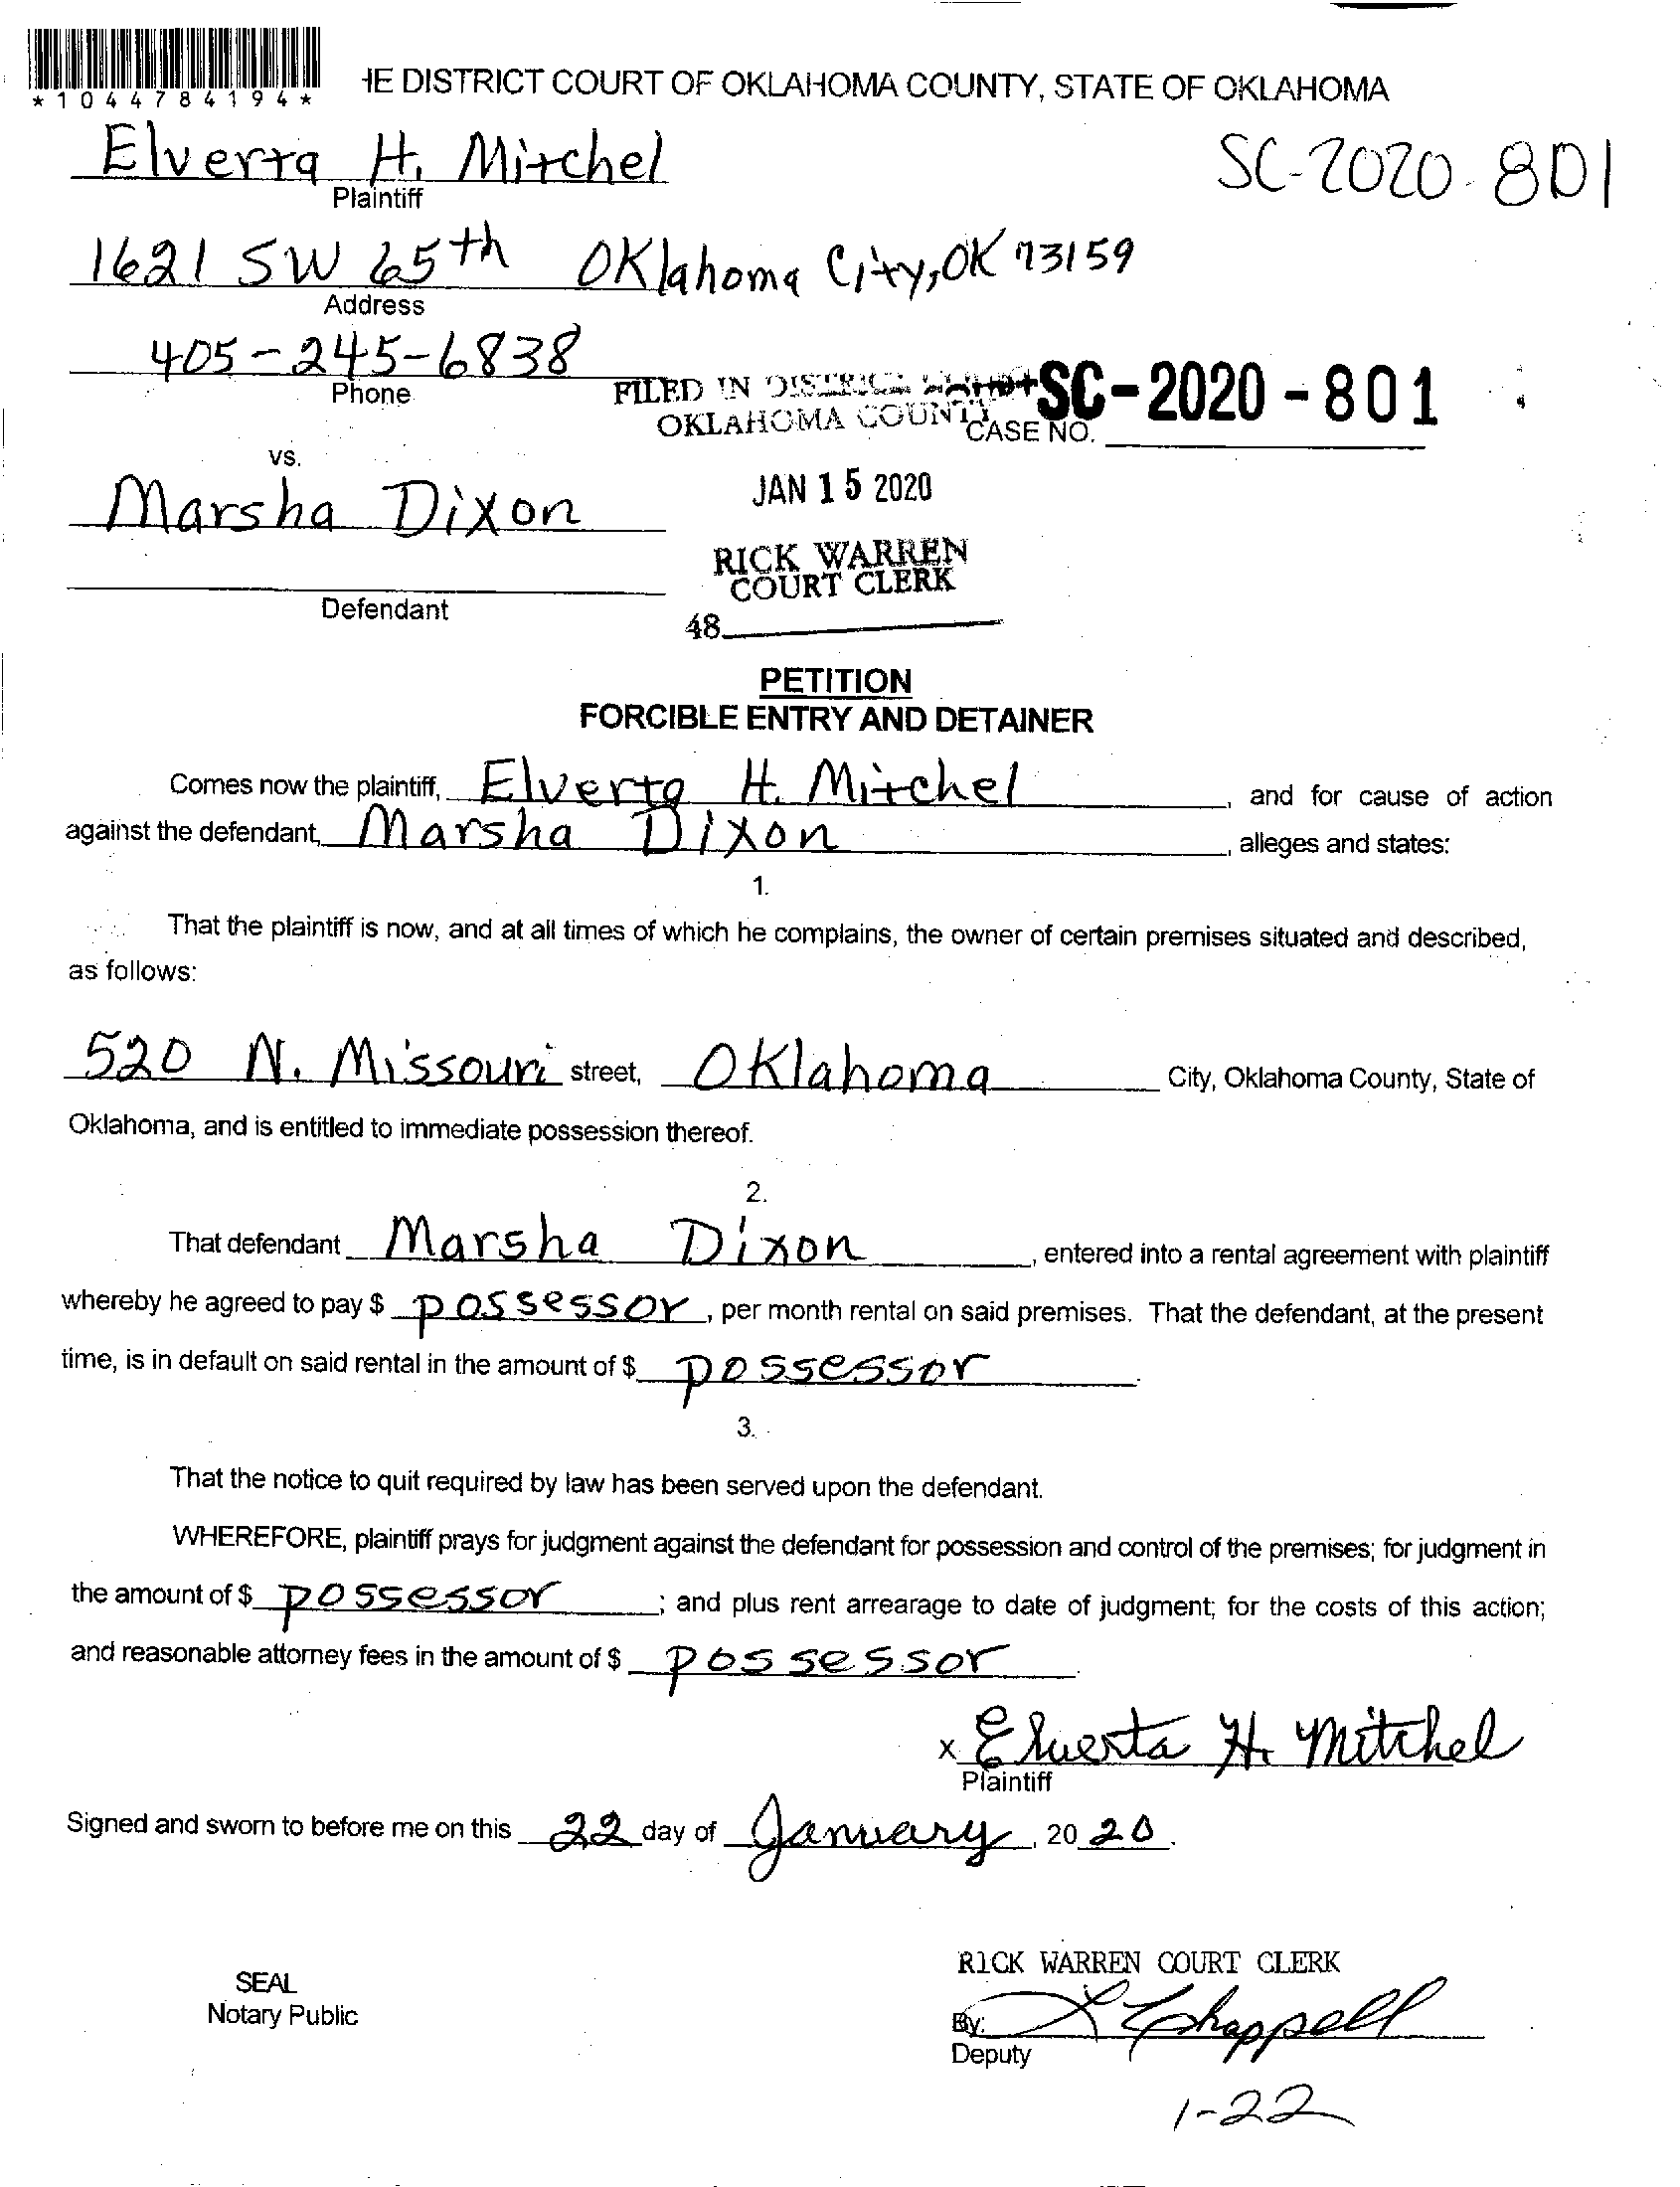 *1044784194*
HE DISTRICT COURT OF OKLAHOMA COUNTY, STATE OF OKLAHOMA
Elverta H. Mitchel
SC-2020-801
Plaintiff
1621 SW 65th Oklahoma City, OK 73159
Address
405-245-6838
Phone
FILED IN DISTRICT COURT
OKLAHOMA COUNTY
SC-2020-801
CASE NO.
vs.
JAN 15 2020
Marsha Dixon
RICK WARREN
COURT CLERK
Defendant
48
PETITION
FORCIBLE ENTRY AND DETAINER
Comes now the plaintiff, Elverta H. Mitchel, and for cause of action
against the defendant, Marsha Dixon, alleges and states:
1.
That the plaintiff is now, and at all times of which he complains, the owner of certain premises situated and described,
as follows:
520 N. Missouri street, Oklahoma City, Oklahoma County, State of
Oklahoma, and is entitled to immediate possession thereof.
2.
That defendant Marsha Dixon, entered into a rental agreement with plaintiff
whereby he agreed to pay $ possessor, per month rental on said premises. That the defendant, at the present
time, is in default on said rental in the amount of $ possessor.
3.
That the notice to quit required by law has been served upon the defendant.
WHEREFORE, plaintiff prays for judgment against the defendant for possession and control of the premises; for judgment in
the amount of $ possessor; and plus rent arrearage to date of judgment; for the costs of this action;
and reasonable attorney fees in the amount of $ possessor.
x Elverta H. Mitchel
Plaintiff
Signed and sworn to before me on this 22 day of January, 2020.
RICK WARREN COURT CLERK
SEAL
Notary Public
By: L Chappell
Deputy
1-22